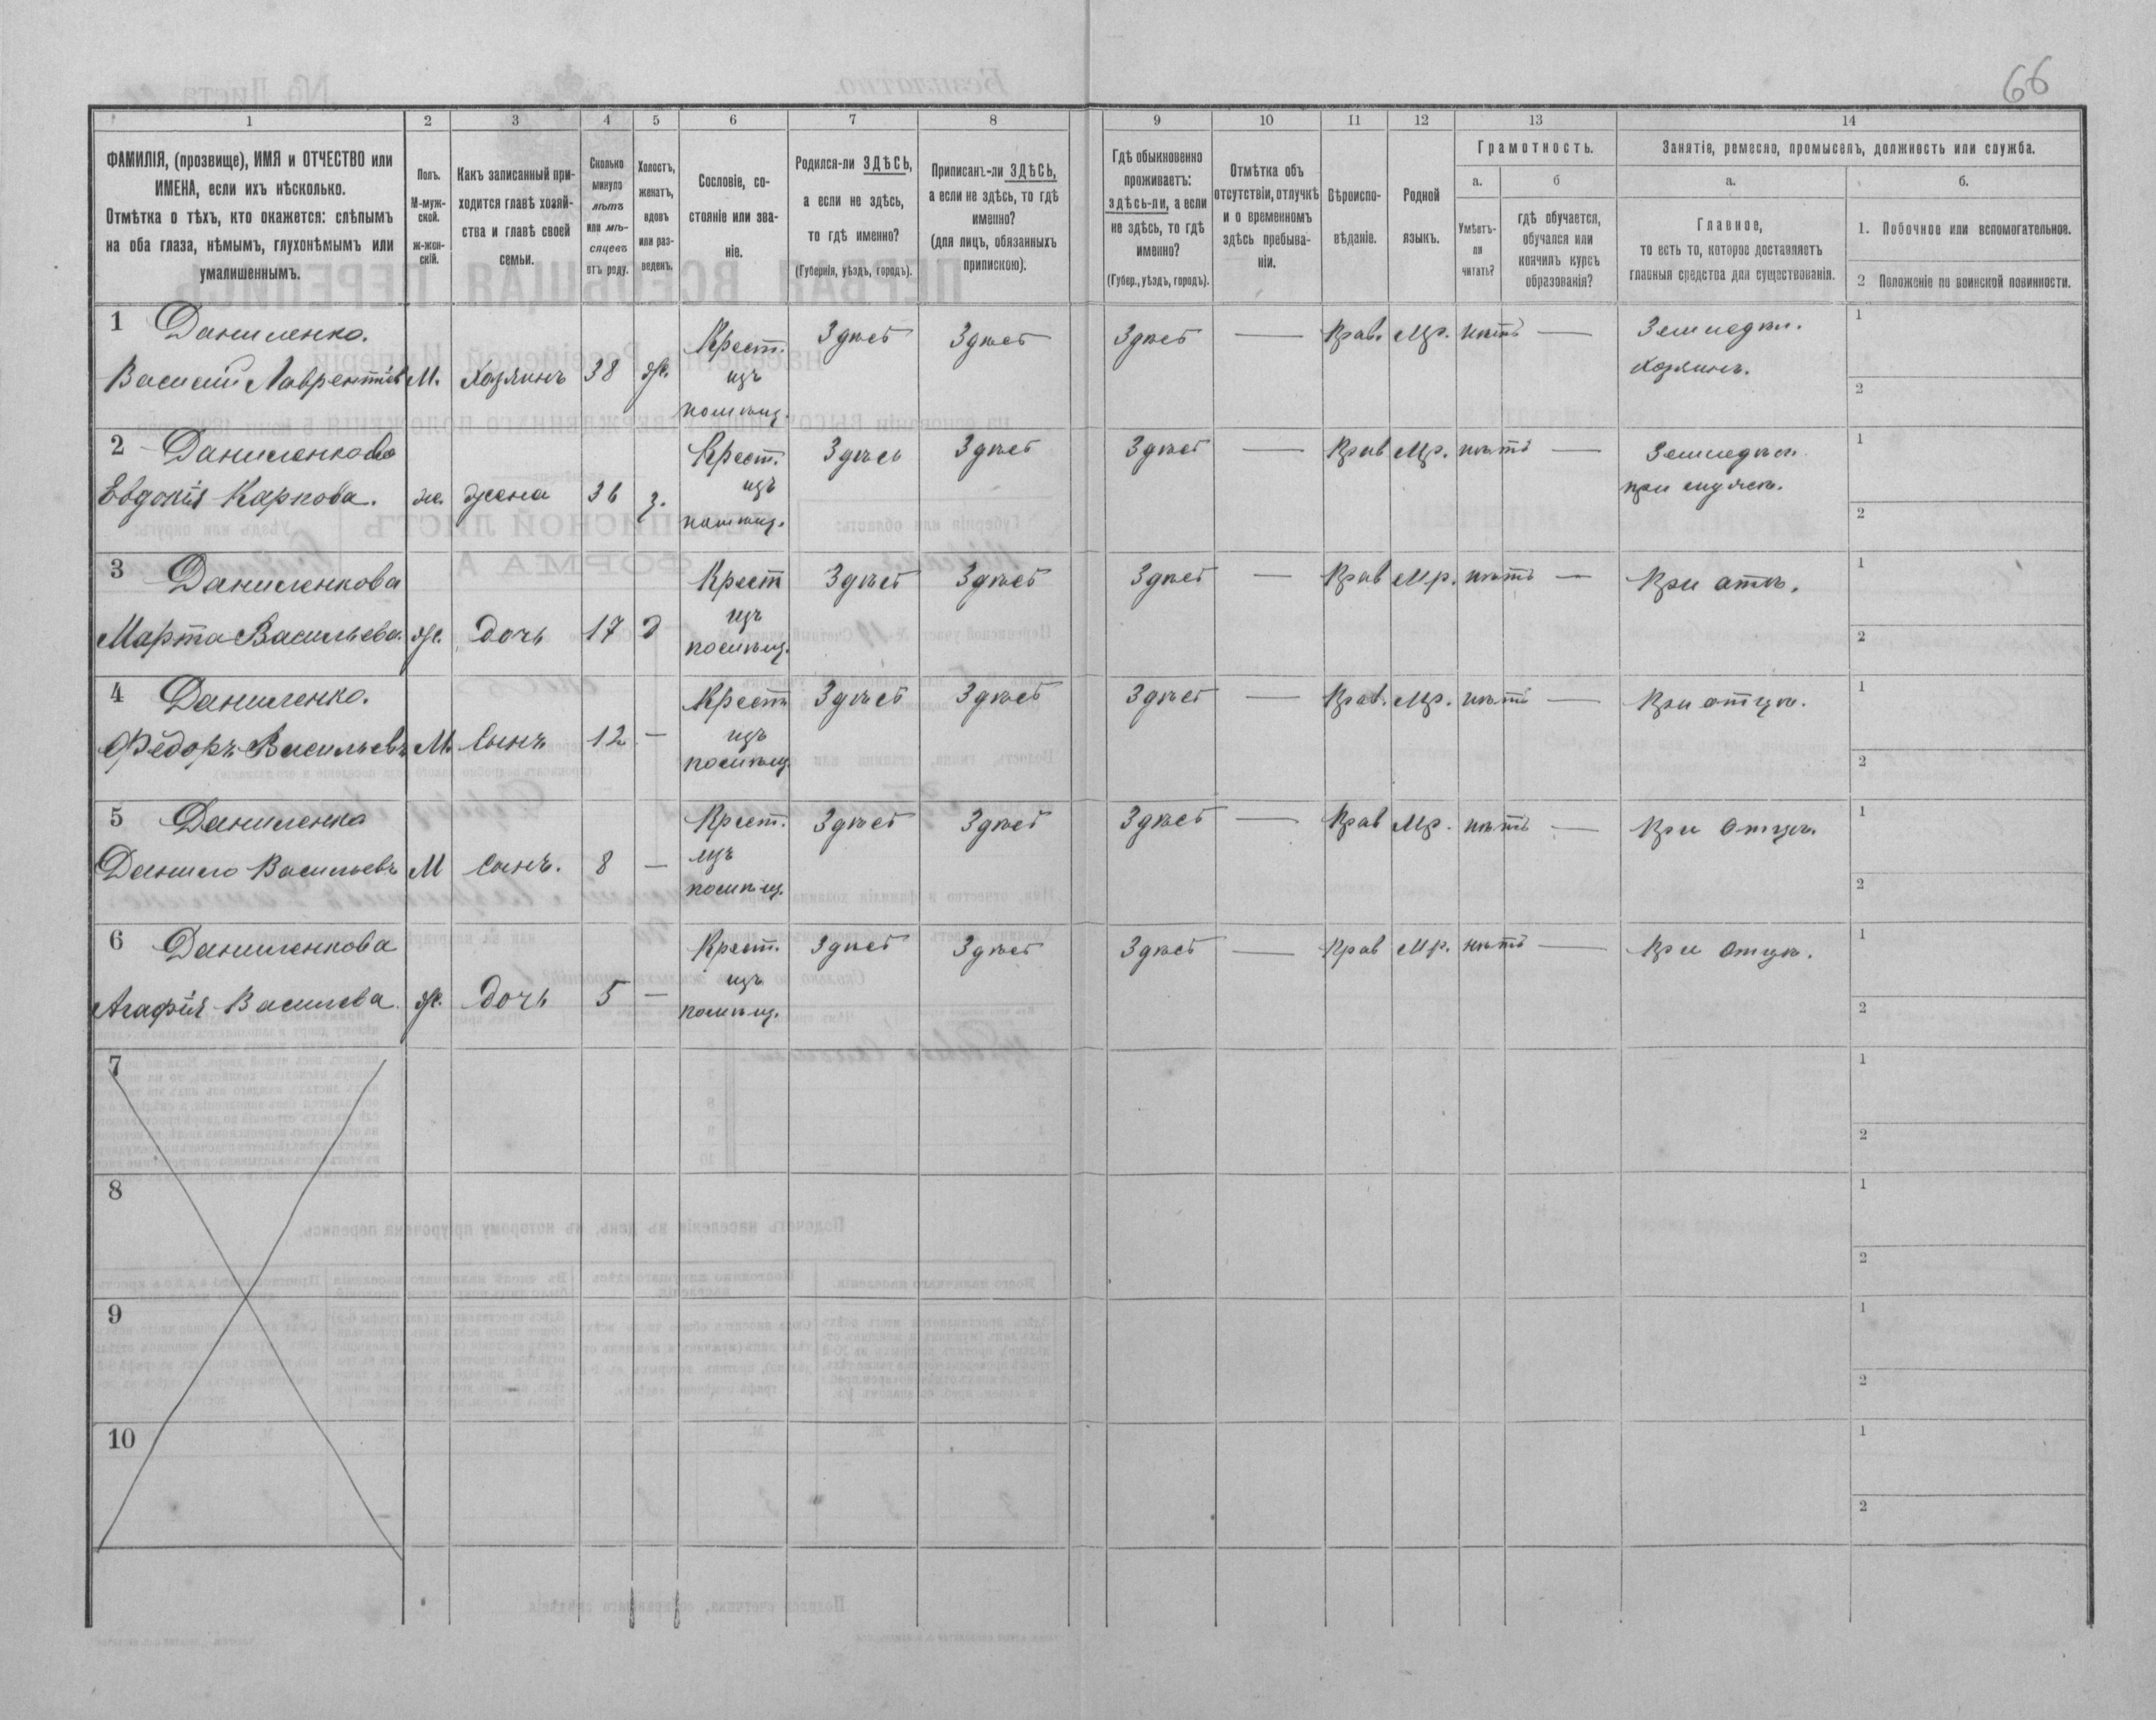 66
1 2 3 4 5 6 7 8 9 10 11 12 13 14
ФАМИЛІЯ, (прозвище), ИМЯ и ОТЧЕСТВО или
ИМЕНА, если ихъ нѣсколько.
Отмѣтка о тѣхъ, кто окажется: слѣпымъ
на оба глаза, нѣмымъ, глухонѣмымъ или
умалишеннымъ.
Полъ.
М-муж-
ской.
ж-жен-
скій.
Какъ записанный при-
ходится главѣ хозяй-
ства и главѣ своей
семьи.
Сколько
минуло
лѣтъ
или мѣ-
сяцевъ
отъ роду.
Холостъ,
женатъ,
вдовъ
или раз-
веденъ.
Сословіе, со-
стояніе или зва-
ніе.
Родился-ли ЗДѢСЬ,
а если не здѣсь,
то гдѣ именно?
(Губернія, уѣздъ, городъ).
Приписанъ-ли ЗДѢСЬ,
а если не здѣсь, то гдѣ
именно?
(для лицъ, обязанныхъ
припискою).
Гдѣ обыкновенно
проживаетъ:
здѣсь-ли, а если
не здѣсь, то гдѣ
именно?
(Губер., уѣздъ, городъ).
Отмѣтка объ
отсутствіи, отлучкѣ
и о временномъ
здѣсь пребыва-
ніи.
Вѣроиспо-
вѣданіе.
Родной
языкъ.
Грамотность.
а. б
Умѣетъ-
ли
читать?
гдѣ обучается,
обучался или
кончилъ курсъ
образованія?
Занятіе, ремесло, промыселъ, должность или служба.
а. б.
Главное,
то есть то, которое доставляетъ
главныя средства для существованія.
1. Побочное или вспомогательное.
2 Положеніе по воинской повинности.
1 Даниленко. Крест. Здѣсь Здѣсь Здѣсь — Прав. Мр. нѣтъ — Земледѣл. 1
Василий Лаврентіев М. Хозяинъ 38 ж. изъ хозяинъ. 2
помѣщ.
2 Даниленкова Крест. Здѣсь Здѣсь Здѣсь — Прав Мр. нѣтъ — Земледѣл. 1
Евдокія Карпова. ж. жена 36 з. изъ при мужѣ. 2
помѣщ.
3 Даниленкова Крест Здѣсь Здѣсь Здѣсь — Прав Мр. нѣтъ — При отц. 1
Марта Васильева. ж. дочь 17 д изъ 2
помѣщ.
4 Даниленко. Крест Здѣсь Здѣсь Здѣсь — Прав. Мр. нѣтъ — При отцѣ. 1
Фёдоръ Васильевъ М. Сынъ 12 — изъ 2
помѣщ
5 Даниленко Крест. Здѣсь Здѣсь Здѣсь — Прав Мр. нѣтъ — При Отцѣ. 1
Данило Васильевъ М сынъ. 8 — изъ 2
помѣщ.
6 Даниленкова Крест. Здѣсь Здѣсь Здѣсь — Прав Мр. нѣтъ — При Отцѣ. 1
Агафія Васильева ж. дочь 5 — изъ 2
помѣщ.
7 1
2
8 1
2
9 1
2
10 1
2